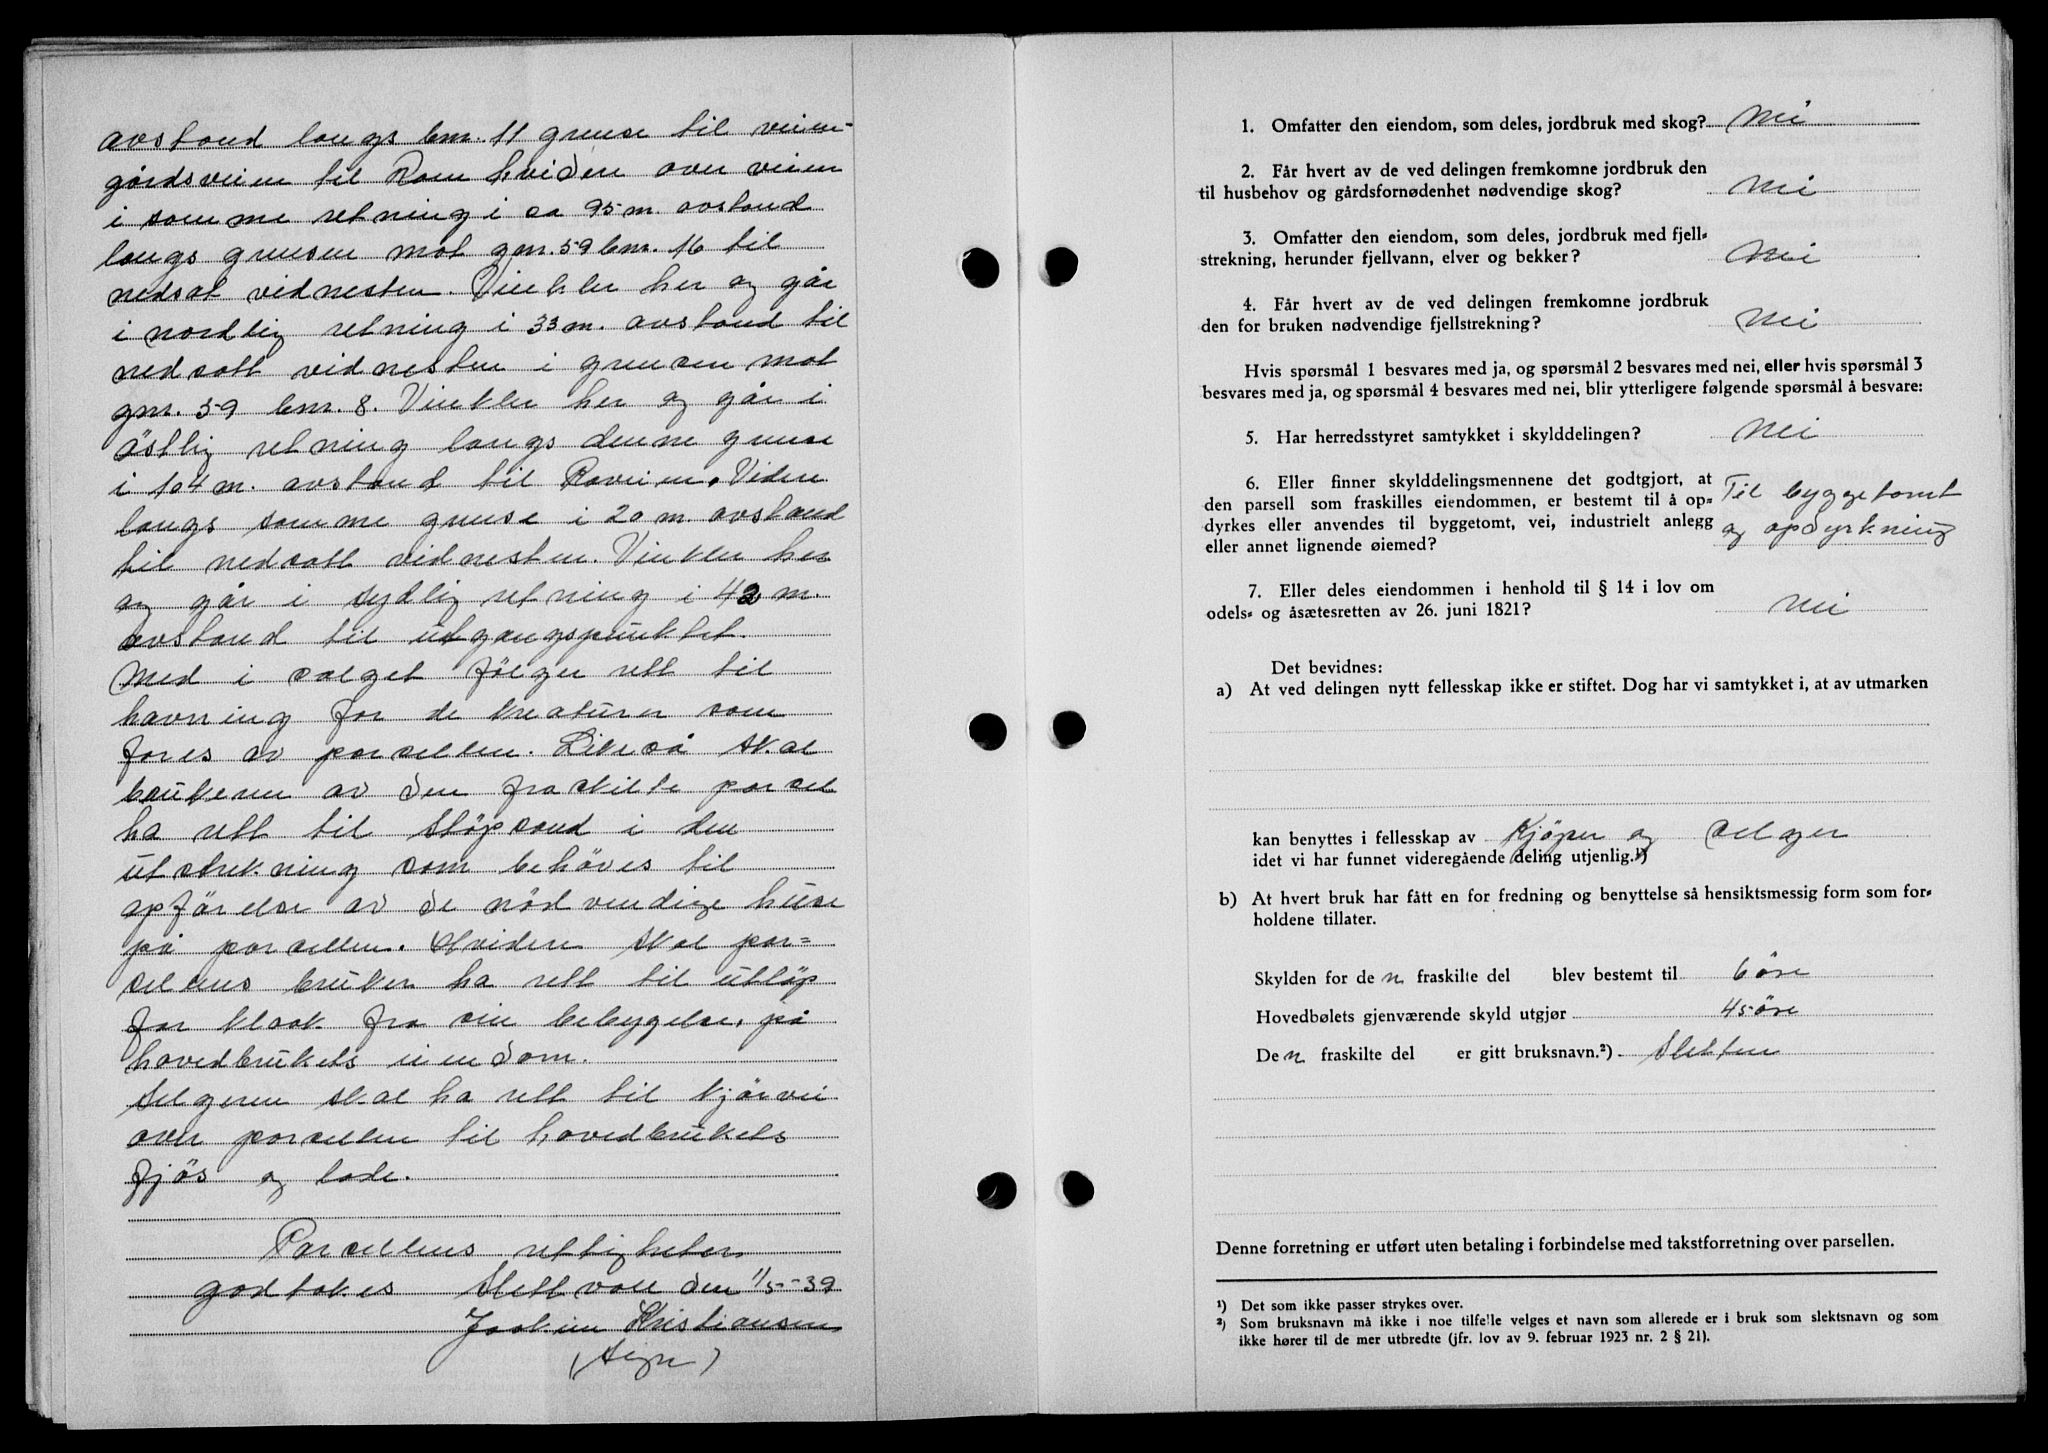 avstand langs bm. 11 grense til veien-
gårdsveien til Ramhviden over veien
i samme retning i ca 95 m. avstand
langs grensen mot gnr. 59 bnr. 16 til
nedsat vidnesten. Vinkler her og går
i nordlig retning i 33 m. avstand til
nedsatt vidnesten i grensen mot
gnr. 59 bnr. 8. Vinkler her og går i
östlig retning langs denne grense
i 104 m. avstand til Raveien. Videre
langs samme grense i 20 m avstand
til nedsatt vidnesten. Vinkler her
og går i sydlig retning i 42 m.
avstand til utgangspunktet.
Med i salget fölger rett til
havning for de kreaturer som
fores av parsellen. Likeså skal
brukeren av den fraskilte parsel
ha rett til stöpsand i den
utstrekning som behöves til
opförelse av de nödvendige huse
på parsellen. Hvidere skal par=
sellens bruker ha rett til utlöp
for kloak fra sin bebygelse, på
hovedbrukets eiendom.
Selgeren skal ha rett til kjörvei
over parsellen til hovedbrukets
fjös og lade.
Parsellens rettigheter
godtakes Slettvoll den 11/5-39
Joakim Kristiansen
(Sign)
1. Omfatter den eiendom, som deles, jordbruk med skog? Nei
2. Får hvert av de ved delingen fremkomne jordbruk den
til husbehov og gårdsfornødenhet nødvendige skog? Nei
3. Omfatter den eiendom, som deles, jordbruk med fjell=
strekning, herunder fjellvann, elver og bekker? Nei
4. Får hvert av de ved delingen fremkomne jordbruk
den for bruken nødvendige fjellstrekning? Nei
Hvis spørsmål 1 besvares med ja, og spørsmål 2 besvares med nei, eller hvis spørsmål 3
besvares med ja, og spørsmål 4 besvares med nei, blir ytterligere følgende spørsmål å besvare:
5. Har herredsstyret samtykket i skylddelingen? Nei
6. Eller finner skylddelingsmennene det godtgjort, at
den parsell som fraskilles eiendommen, er bestemt til å op=
dyrkes eller anvendes til byggetomt, vei, industrielt anlegg
eller annet lignende øiemed? Til byggetomt
og opdyrkning
7. Eller deles eiendommen i henhold til § 14 i lov om
odels= og åsætesretten av 26. juni 1821? Nei
Det bevidnes:
a) At ved delingen nytt fellesskap ikke er stiftet. Dog har vi samtykket i, at av utmarken
kan benyttes i fellesskap av Kjöper og selger
idet vi har funnet videregående deling utjenlig.¹)
b) At hvert bruk har fått en for fredning og benyttelse så hensiktsmessig form som for=
holdene tillater.
Skylden for den fraskilte del blev bestemt til 6 öre
Hovedbølets gjenværende skyld utgjør 45 öre
Den fraskilte del er gitt bruksnavn.²) Sletten
Denne forretning er utført uten betaling i forbindelse med takstforretning over parsellen.
¹) Det som ikke passer strykes over.
²) Som bruksnavn må ikke i noe tilfelle velges et navn som allerede er i bruk som slektsnavn og som
ikke hører til de mer utbredte (jfr. lov av 9. februar 1923 nr. 2 § 21).